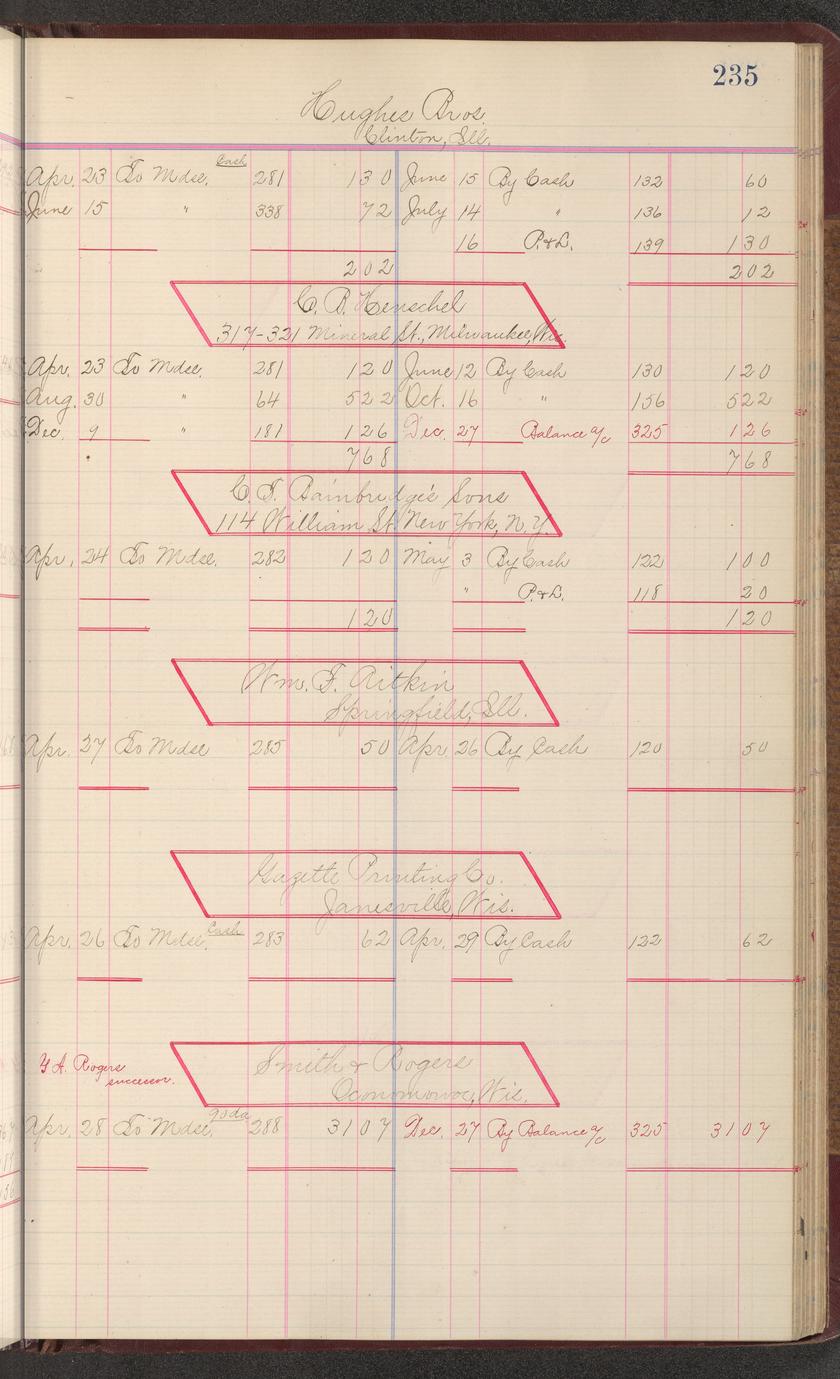 235
Hughes Bros.
Clinton, Ill.
Cash
Apr. 23 To Mdse. 281 130 June 15 By Cash 132 60
June 15 " 338 72 July 14 " 136 12
16 P.&L. 139 130
202 202
C. B. Henschel
317-321 Mineral St., Milwaukee, Wis.
Apr. 23 To Mdse. 281 120 June 12 By Cash 130 120
Aug. 30 " 64 522 Oct. 16 " 156 522
Dec. 9 " 181 126 Dec. 27 Balance a/c 325 126
768 768
C. T. Bainbridge's Sons
114 William St. New York, N.Y.
Apr. 24 To Mdse. 282 120 May 3 By Cash 122 100
" P.&L. 118 20
120 120
Wm. F. Aitkin
Springfield, Ill.
Apr. 27 To Mdse 285 50 Apr. 26 By Cash 120 50
Gazette Printing Co.
Janesville, Wis.
Cash
Apr. 26 To Mdse. 283 62 Apr. 29 By Cash 122 62
Smith & Rogers
A. Rogers
successor.
Oconomowoc, Wis.
90 da
Apr. 28 To Mdse. 288 3107 Dec. 27 By Balance a/c 325 3107